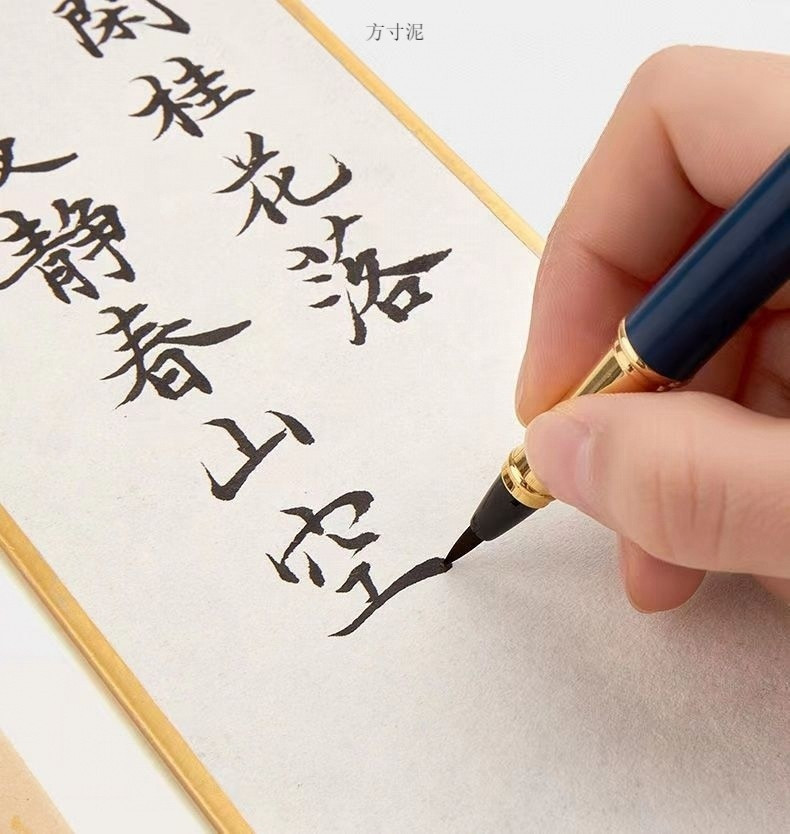 方寸泥
閑桂花落
静春山空